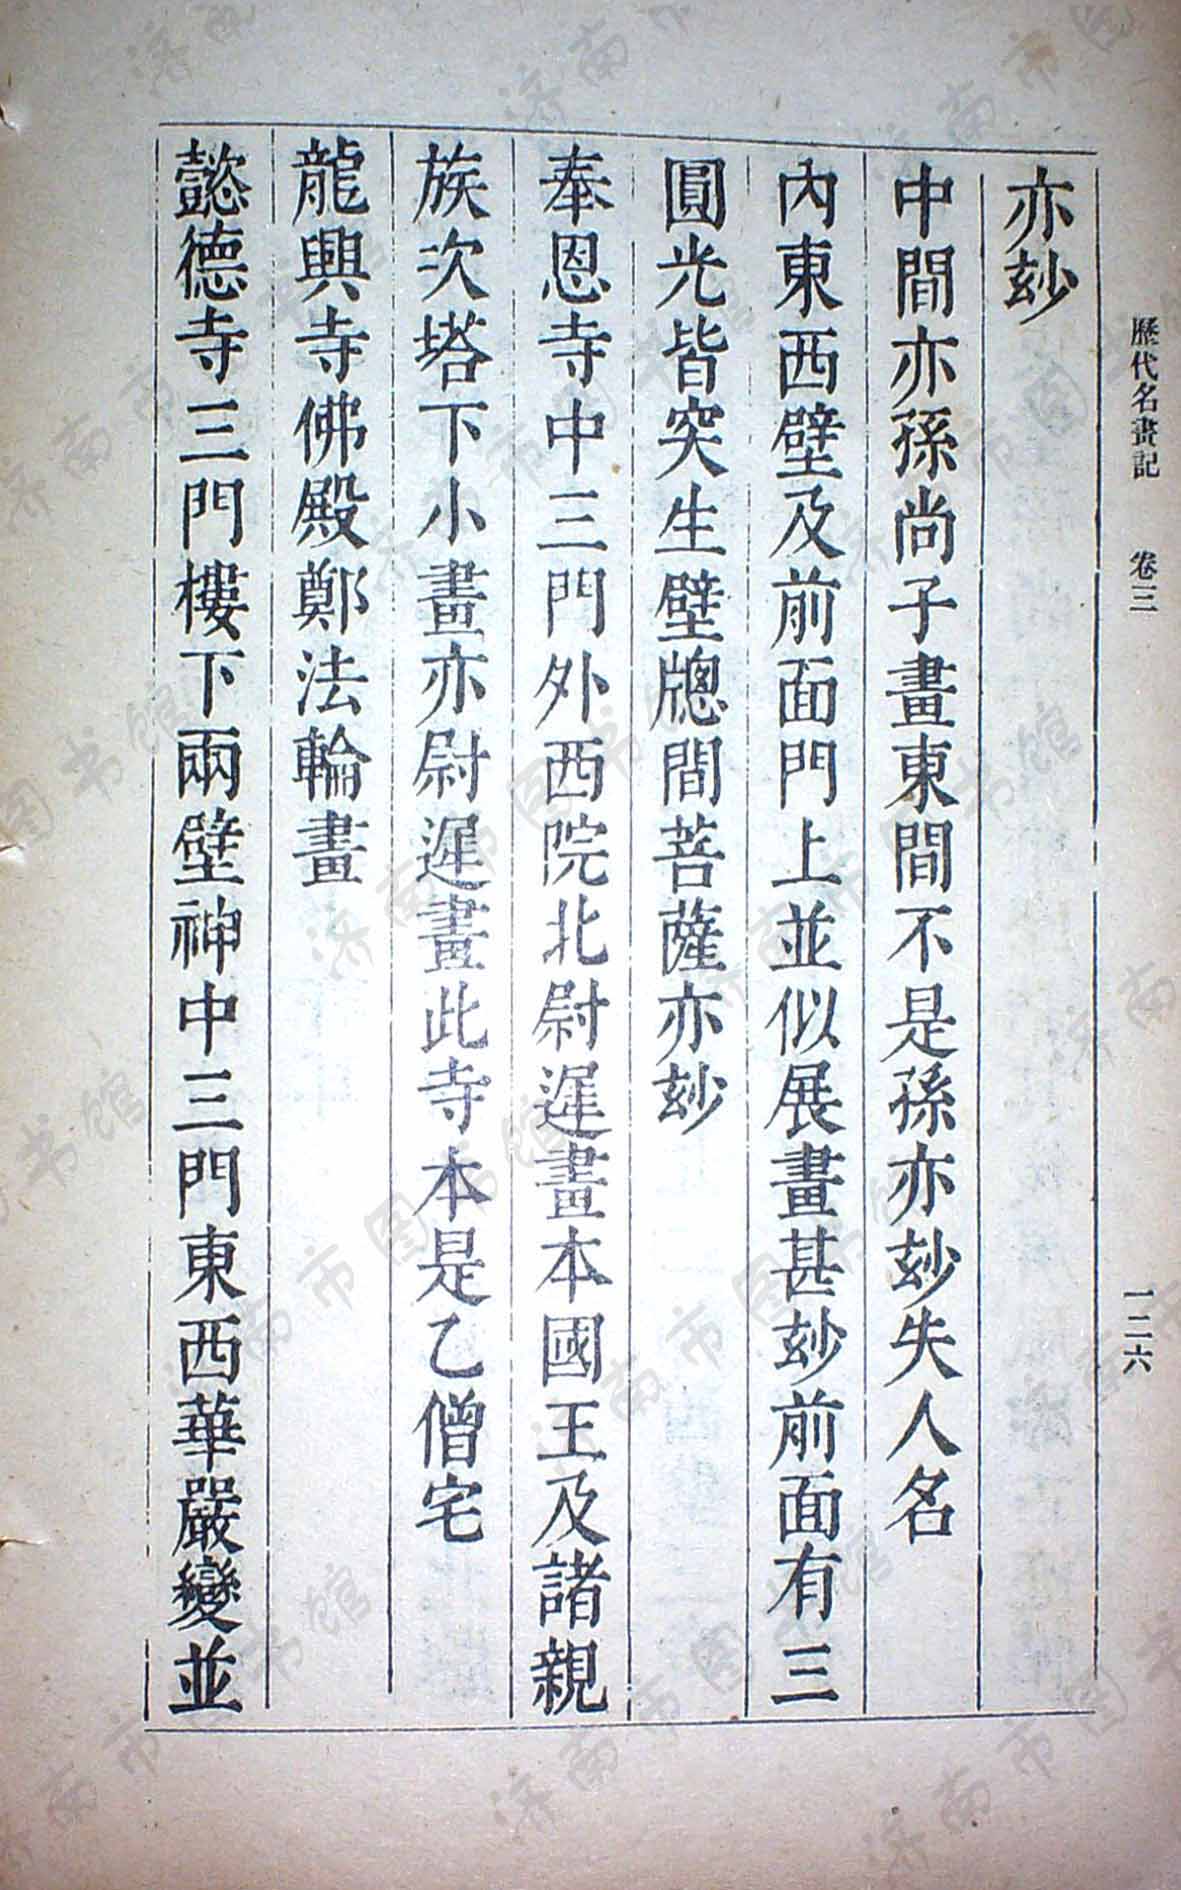 歷代名畫記 卷三 一二六
亦玅
中間亦孫尚子畫東間不是孫亦玅失人名
內東西壁及前面門上並似展畫甚玅前面有三
圓光皆突生壁牎間菩薩亦玅
奉恩寺中三門外西院北尉遲畫本國王及諸親
族次塔下小畫亦尉遲畫此寺本是乙僧宅
龍興寺佛殿鄭法輪畫
懿德寺三門樓下兩壁神中三門東西華嚴變並
济南市图书馆